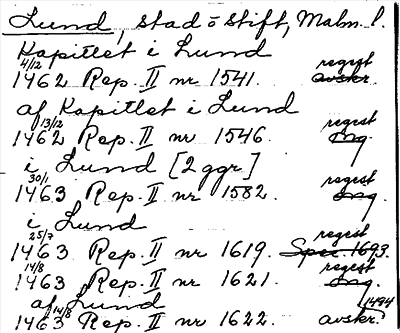 Lund, stad o stift, Malm. l.
Kapitlet i Lund
4/12 regest
1462 Rep. II nr 1541. avskr.
af Kapitlet i Lund
13/12 regest
1462 Rep. II nr 1546. Ang.
i Lund [2 ggr.]
30/1 regest
1463 Rep. II nr 1582. Ang.
i Lund
25/7 regest
1463 Rep. II nr 1619. Spec. 1693.
14/8 regest
1463 Rep. II nr 1621. Ang.
af Lund 1494
14/8
1463 Rep. II nr 1622. avskr.